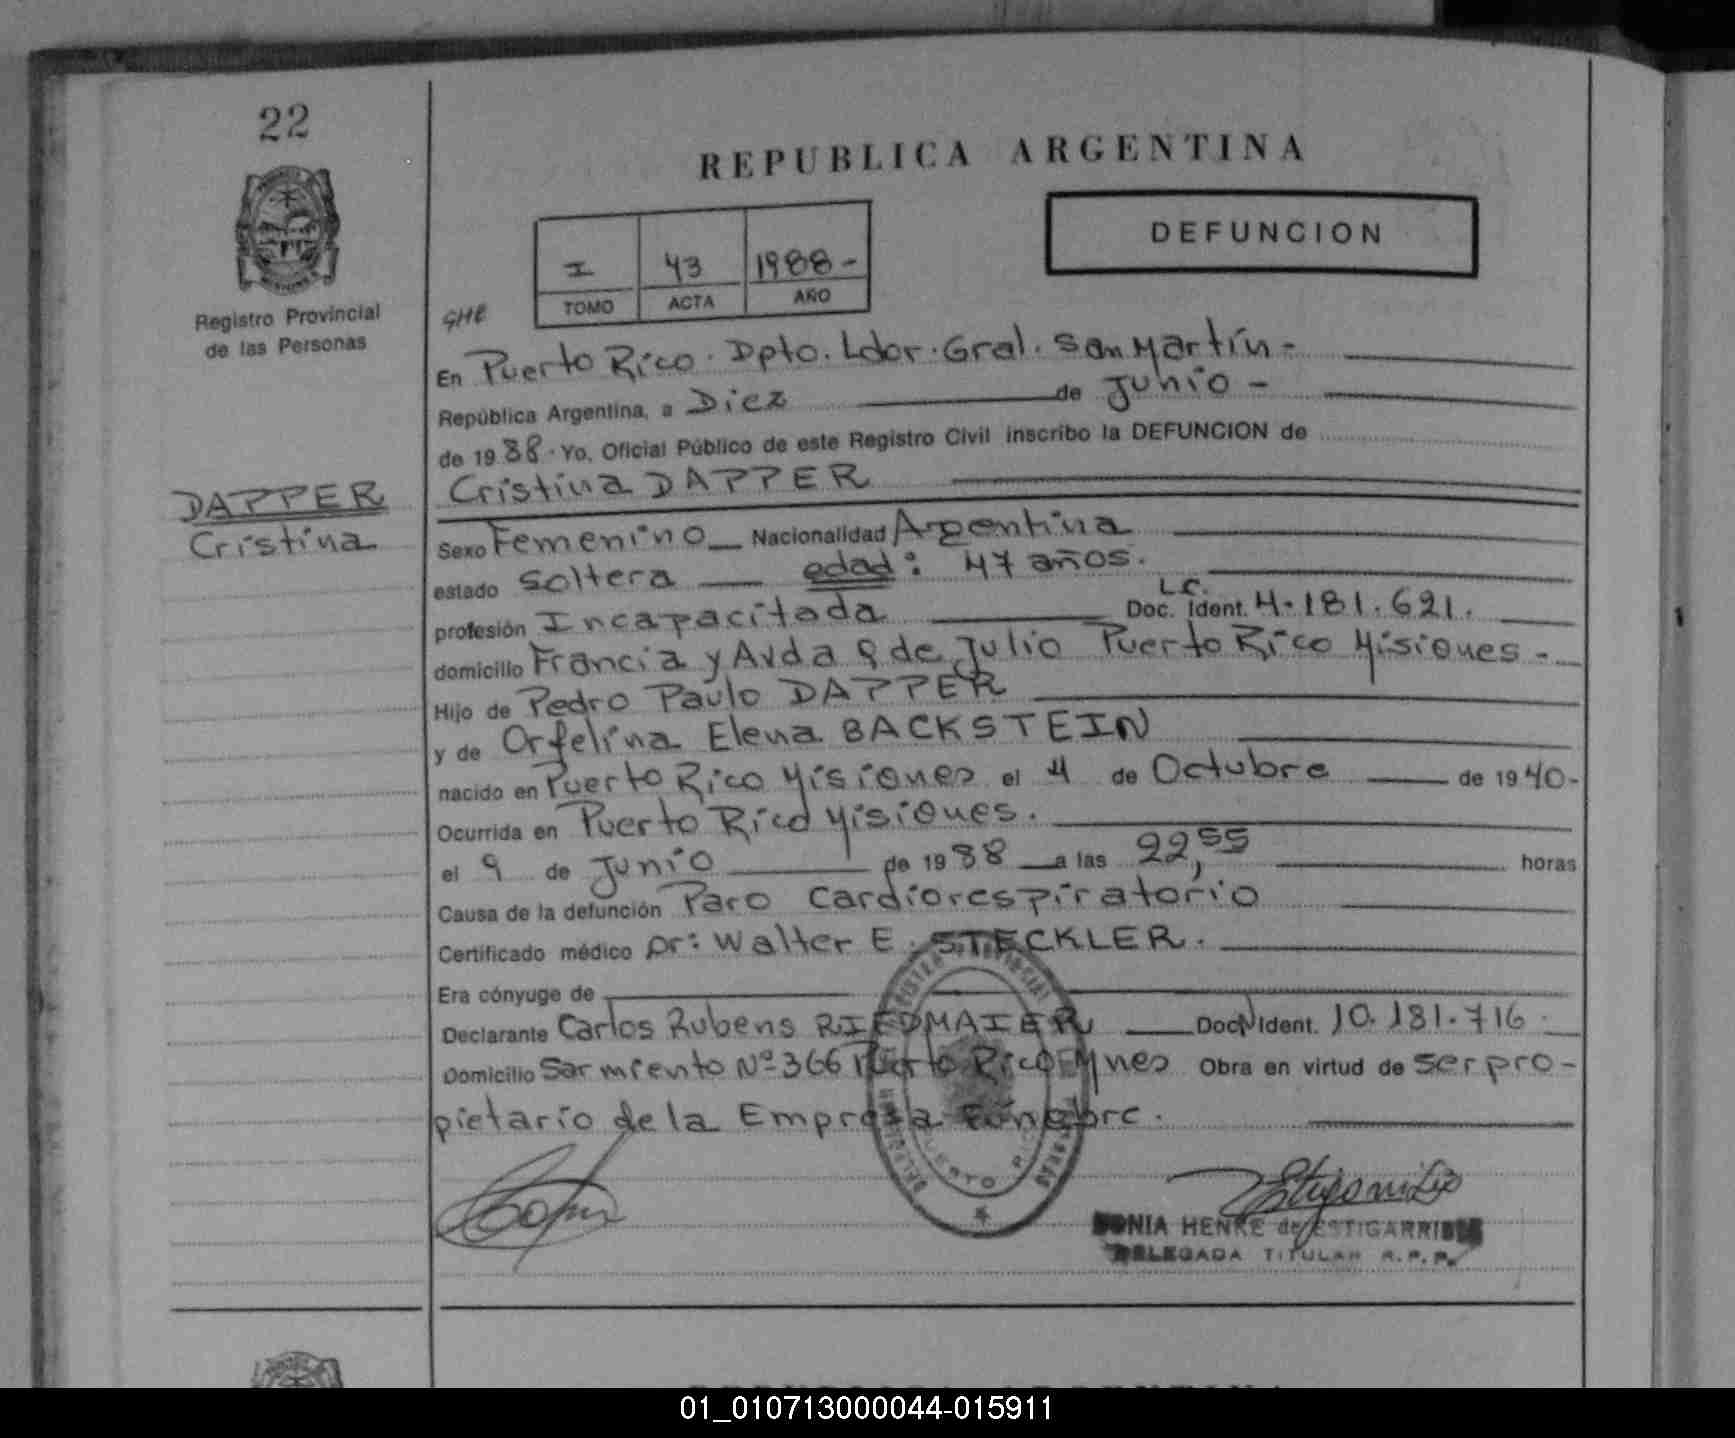 22
REPUBLICA ARGENTINA
DEFUNCION
I 43 1988-
TOMO ACTA AÑO
Registro Provincial
de las Personas
GHE
En Puerto Rico. Dpto. Ldor. Gral. San Martín-
República Argentina, a Diez de Junio-
de 19 88. Yo, Oficial Público de este Registro Civil inscribo la DEFUNCION de
Cristina DAPPER
DAPPER
Cristina
Sexo Femenino Nacionalidad Argentina
estado soltera edad: 47 años.
profesión Incapacitada L.C. Doc. Ident. 4.181.621.
domicilio Francia y Avda 9 de Julio Puerto Rico Misiones-
Hijo de Pedro Paulo DAPPER
y de Orfelina Elena BACKSTEIN
nacido en Puerto Rico Misiones el 4 de Octubre de 19 40-
Ocurrida en Puerto Rico Misiones.
el 9 de Junio de 19 88 a las 22,55 horas
Causa de la defunción Paro cardiorespiratorio
Certificado médico Dr: Walter E. STECKLER.
Era cónyuge de
Declarante Carlos Rubens RIEDMAIER Doc. Ident. 10.181.716.
Domicilio Sarmiento Nº 366 Puerto Rico Mnes Obra en virtud de ser pro-
pietario de la Empresa Fúnebre.
PUERTO RICO
SONIA HENKE de ESTIGARRIBIA
DELEGADA TITULAR R.P.P.
01_010713000044-015911